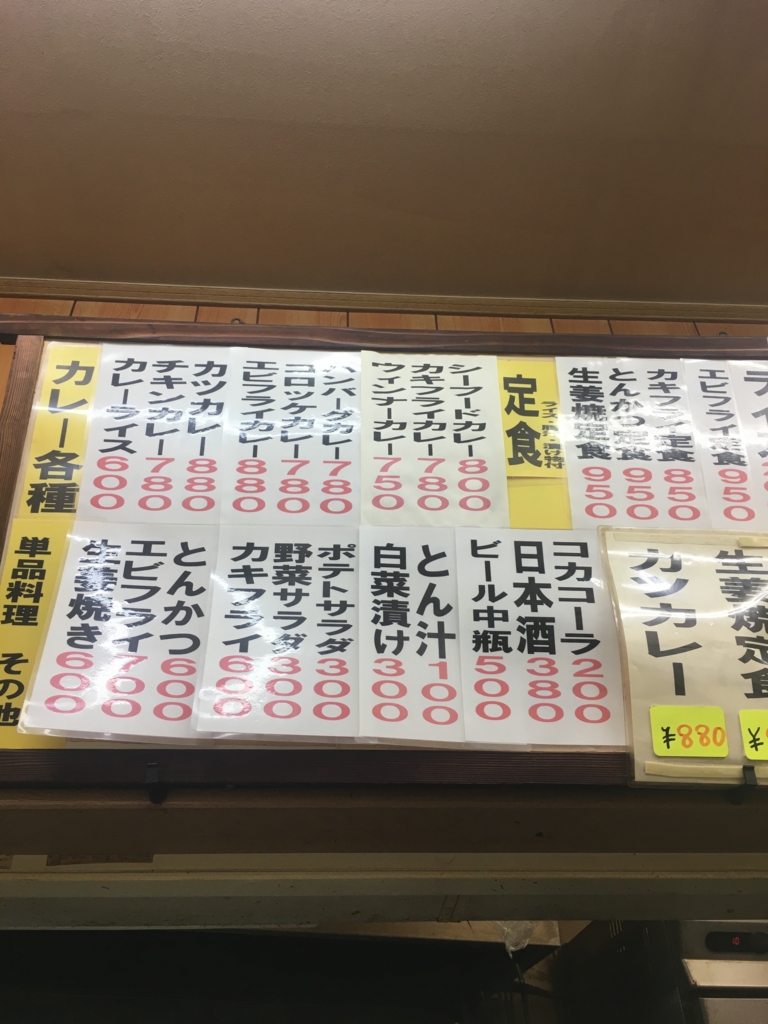 カレー各種
カレーライス 600
チキンカレー 780
カツカレー 880
エビフライカレー 880
コロッケカレー 780
ハンバーグカレー 780
ウィンナーカレー 750
カキフライカレー 780
シーフードカレー 800
定食
生姜焼定食 950
とんかつ定食 950
カキフライ定食 850
エビフライ定食 950
単品料理 その他
生姜焼き 600
エビフライ 700
とんかつ 600
カキフライ 600
野菜サラダ 300
ポテトサラダ 300
白菜漬け 300
とん汁 100
ビール中瓶 500
日本酒 380
コカコーラ 200
カツカレー
¥880
生姜焼定食
¥